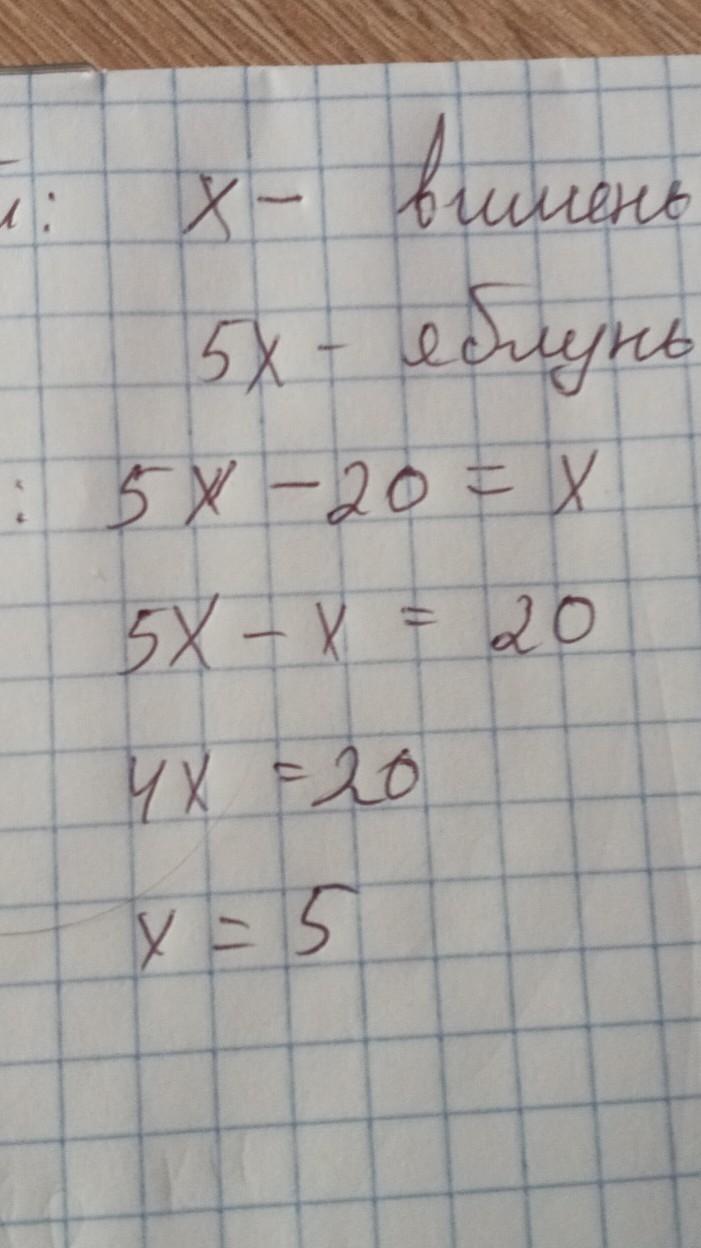 : x - вишень
5x - яблунь
: 5x - 20 = x
5x - x = 20
4x = 20
x = 5